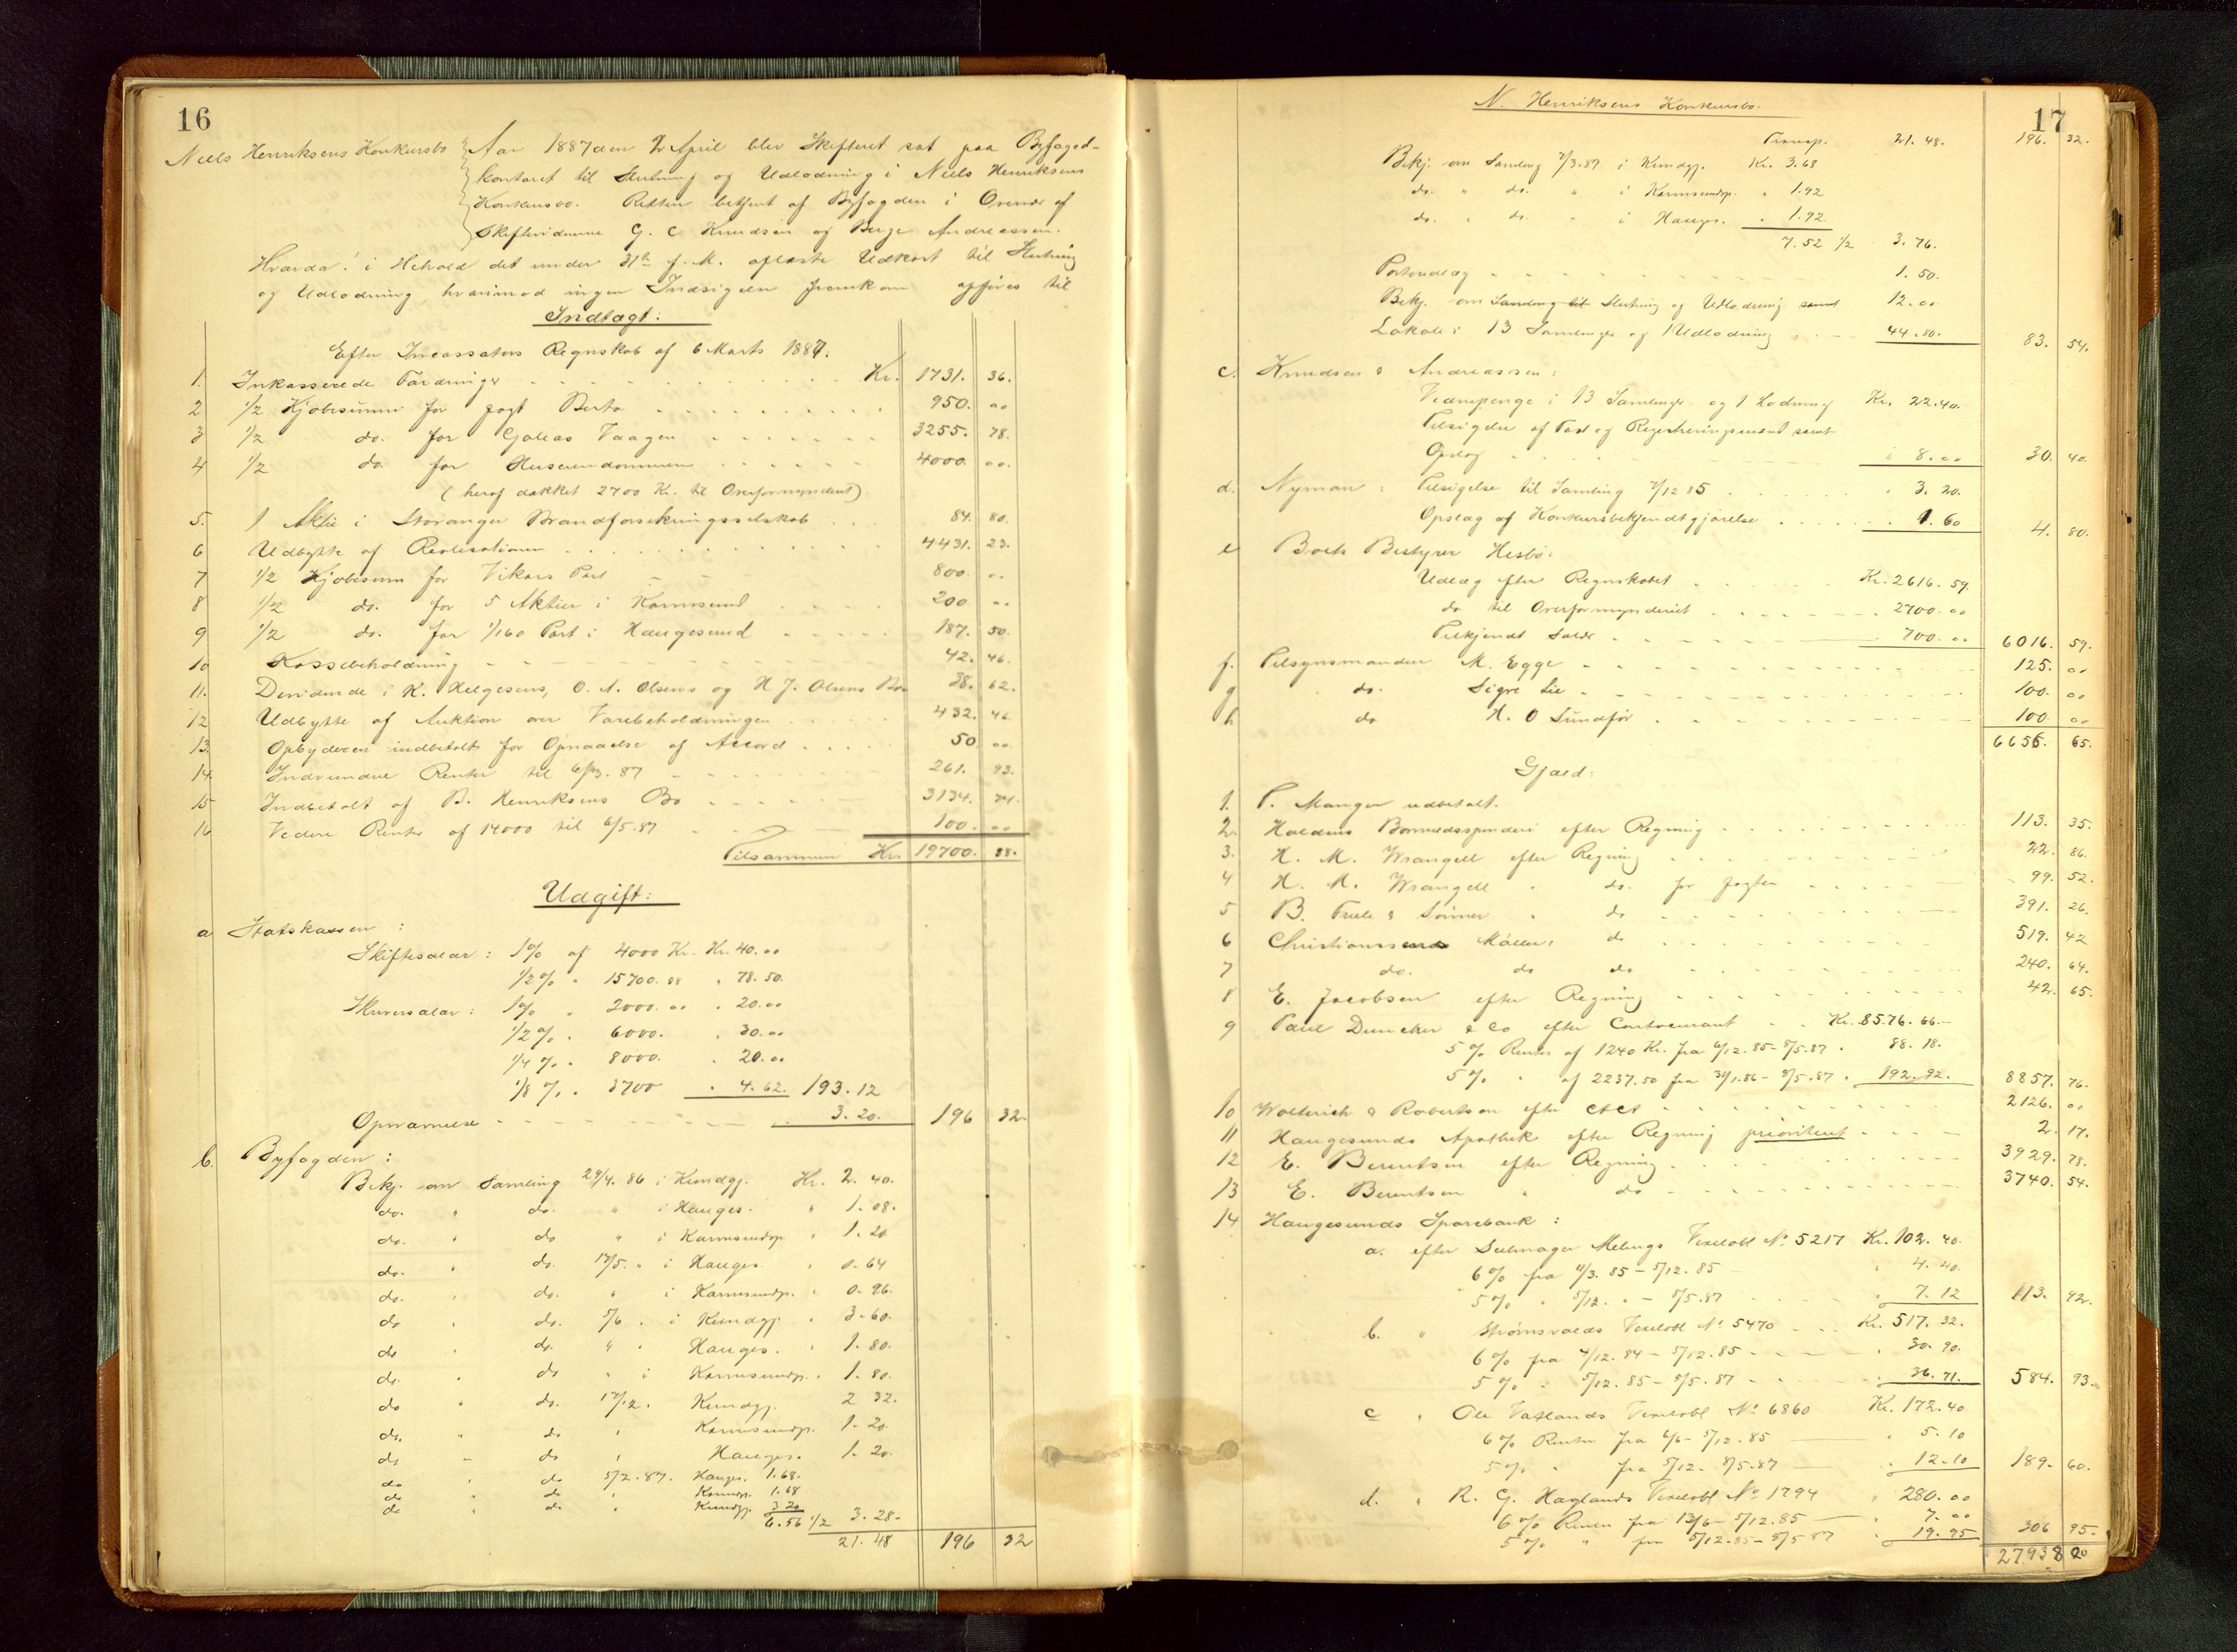 16
Niels Henriksens Konkursbo
Aar 1887 den 2 April blev Skifteret sat paa Byfoged-
kontoret til Slutning og Udlodning i Niels Henriksens
Konkursbo. Retten betjent af Byfogden i Overvær af
Skiftevidnerne G. C. Knudsen og Berge Andreassen.
Hvorda! i Henhold det under 31te f. M. oplæste Udkast til Slutning
og Udlodning, hvorimod ingen Indsigelse fremkom opgjøres til
Indtægt:
Efter Incassators Regnskab af 6 Marts 1887.
1. Inkasserede Fordringer Kr. 1731. 36.
2 1/2 Kjøbesum for Jagt Berta 950. 00
3 1/2 do. for Galeas Vaagen 3255. 78.
4 1/2 do for Huseiendommen 4000. 00.
(heraf dækket 2700 Kr. til Overformynderiet)
5. 1 Aktie i Stavanger Brandforsikringsselskab 84. 80.
6 Udbytte af Realisationen 4431. 23.
7 1/2 Kjøbesum for Vikars Part 800. 00
8 1/2 do. for 5 Aktier i Karmsund 200 00
9 1/2 do. for 1/160 Part i Haugesund 187. 50.
10 Kassebeholdning 42. 46.
11. Dividende i K. Helgesens, O. A. Olsens og H J. Olsens Bo 38. 62.
12 Udbytte af Auktion over Varebeholdningen 432. 46
13. Opbyderen indbetalt for Opnaaelse af Accord 50 00
14 Indvundne Renter til 6/3. 87 261. 93.
15 Indbetalt af B. Henriksens Bo 3134. 74.
16 Videre Renter af 14000 til 6/5.87 100. 00
Tilsammen Kr. 19700. 88.
Udgift:
a Statskassen:
Skiftesalær: 1% af 4000 Kr. Kr. 40.00
1/2 % " 15700.88 " 78.50.
Skriversalær: 1% " 2000.00 " 20.00
1/2 % " 6000. " 30.00
1/4 % " 8000. " 20.00
1/8 % " 3700 " 4.62. 193.12
3.20. 196 32.
b. Byfogden:
Bekj. om Samling 29/4. 86 i Kundgj. Kr. 2. 40.
do. " do. " i Hauges. " 1. 08.
do. " do " i Karmsundsp. " 1. 20
do. " do. 13/5. " i Hauges. " 0. 64
do. " do. " i Karmsundsp. " 0. 96.
do " do. 5/6 " i Kundgj. " 3. 60.
do " do. " " Hauges. " 1. 80.
do. " do " i Karmsundsp. " 1. 80.
do " do. 17/12. Kundgj. 2 32.
do. " do " Karmsundsp. 1. 20.
do " do " Hauges. 1. 20.
do " do 5/2.87. Hauges. 1.68.
do " do " Karmsp. 1.68
do " do " Kundgj. 3 20
6.56 1/2 3. 28.
21. 48 196 32
17
N. Henriksens Konkursbo.
Transp. 21. 48. 196. 32.
Bekj. om Samling 7/3.87 i Kundgj. Kr. 3.68
do. " do. " i Karmsundsp. " 1.92
do. " do. " i Hauges. " 1.92.
7.52 1/2 3. 76.
Portoudlæg 1. 50.
Bekj. om Samling til Slutning og Udlodning samt 12.00
Lokale i 13 Samlinger og 1 Udlodning 44.80. 83. 54.
c. Knudsen & Andreassen:
Vidnepenge i 13 Samlinger og 1 Lodning Kr. 22.40.
Tilsigelse af Taxt og Registreringsmænd samt
Opslag " 8.00 30. 40.
d. Nyman: Tilsigelse til Samling 7/12 85 " 3. 20.
Opslag af Konkursbekjendtgjørelse 1. 60 4. 80.
e Boets Bestyrer Hesbø:
Udlæg efter Regnskabet Kr. 2616. 59.
do til Overformynderiet 2700. 00
Tilkjendt Salær 700. 00 6016. 59.
f. Tilsynsmanden M. Egge 125. 00
g do. Sigv Lie 100. 00
h do H. O Sundfør 100. 00
6656. 65.
Gjæld:
1. P. Manger udbetalt.
2. Haldens Bomuldsspinderi efter Regning 113. 35.
3. H. M. Wrangell efter Regning 22. 86.
4 H. M. Wrangell " do. for Jagten 99. 52.
5 B. Friele & Sønner " do 391. 26.
6 Christianssands Møller, do 519. 42
7 do. do do 240. 64.
8 E. Jacobsen efter Regning 42. 65.
9 Paul Duncker & Co efter Contocurant Kr. 8576. 66.
5 % Renter af 1240 Kr. fra 6/12. 85 - 8/5.87 " 88. 18.
5 % " af 2237.50 fra 31/1.86 - 8/5.87 " 192. 92. 8857. 76.
10 Wolterich & Robertson efter Cto Ct 2126. 00
11 Haugesunds Apothek efter Regning prioriteret 2. 17.
12 E. Berentsen efter Regning 3929. 78.
13 E. Berentsen " do 3740. 54.
14 Haugesunds Sparebank:
a. efter Seilmager Melings Vexelobl No 5217 Kr. 102. 40.
6 % fra 4/3. 85 - 5/12. 85 " 4. 40.
5 % " 5/12. " - 8/5.87 " 7. 12 113. 92.
b. " Strømsvolds Vexelobl No 5470 Kr. 517. 32.
6 % fra 4/12. 84 - 5/12. 85 " 30. 90.
5 % " 5/12. 85 - 8/5. 87 " 36. 71. 584. 93.
c " Ole Vatlands Vexelobl No 6860 Kr. 172.40
6 % Renter fra 6/6 - 5/12. 85 " 5. 10
5 % " fra 5/12. 8/5.87 " 12.10 189. 60.
d. " R. G. Haglands Vexelobl No 1794 " 280. 00
6 % Renter fra 13/6 - 5/12. 85 " 7. 00
5 % " fra 5/12. 85 - 8/5 87 " 19. 95 306 95.
27938 20